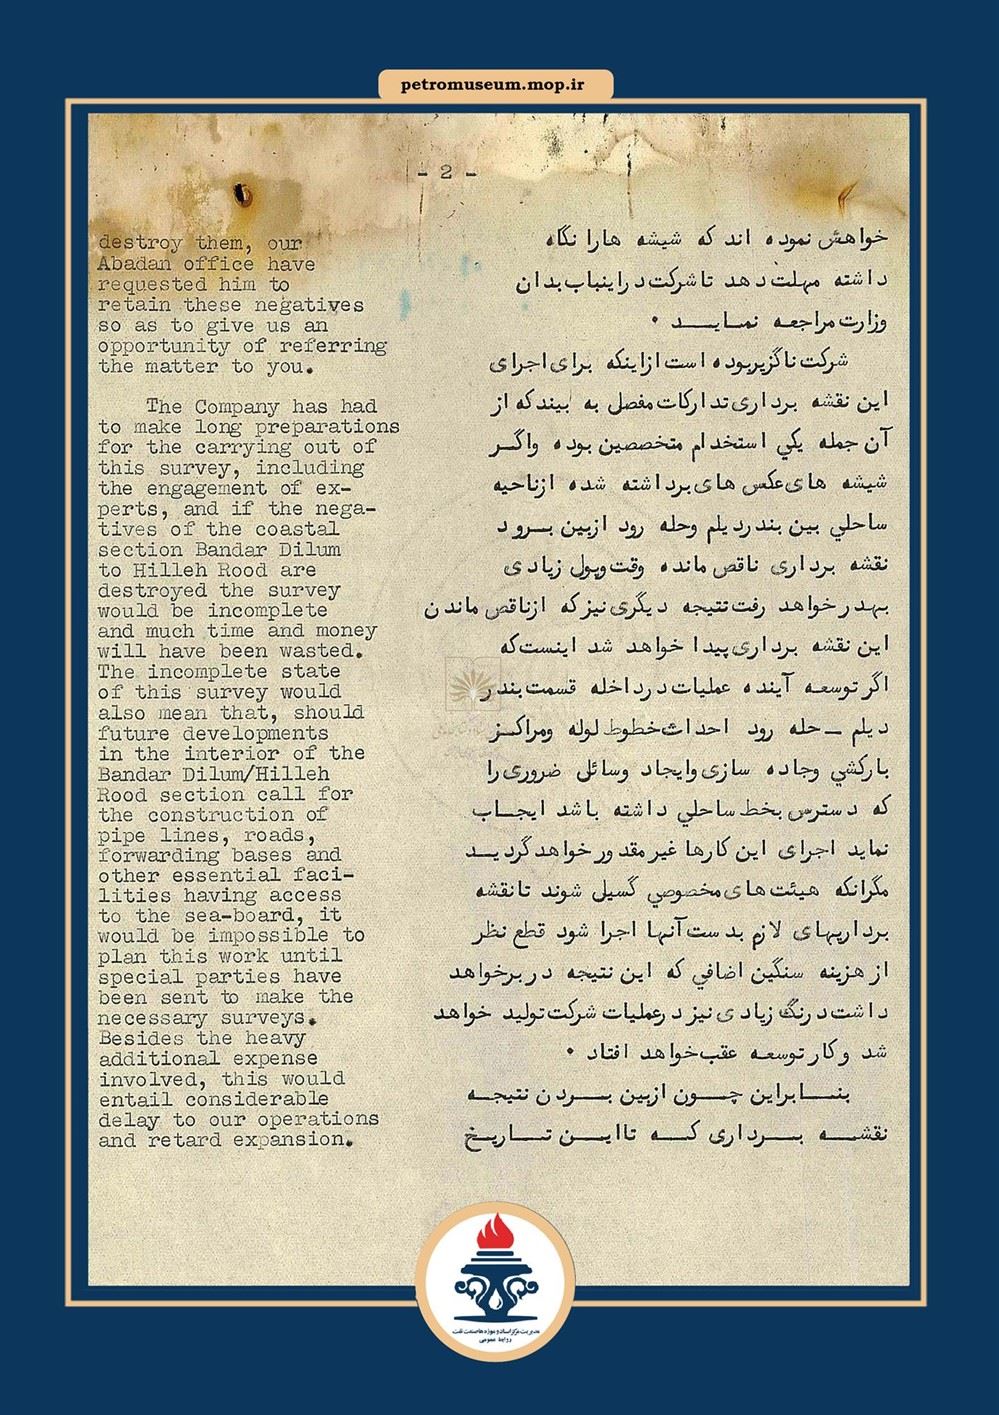 petromuseum.mop.ir
- 2 -
destroy them, our
Abadan office have
requested him to
retain these negatives
so as to give us an
opportunity of referring
the matter to you.
The Company has had
to make long preparations
for the carrying out of
this survey, including
the engagement of ex-
perts, and if the nega-
tives of the coastal
section Bandar Dilum
to Hilleh Rood are
destroyed the survey
would be incomplete
and much time and money
will have been wasted.
The incomplete state
of this survey would
also mean that, should
future developments
in the interior of the
Bandar Dilum/Hilleh
Rood section call for
the construction of
pipe lines, roads,
forwarding bases and
other essential faci-
lities having access
to the sea-board, it
would be impossible to
plan this work until
special parties have
been sent to make the
necessary surveys.
Besides the heavy
additional expense
involved, this would
entail considerable
delay to our operations
and retard expansion.
خواهش نموده اند که شیشه هارا نگاه
داشته مهلت دهد تا شرکت دراینباب بدان
وزارت مراجعه نمایـــد ٠
شرکت ناگزیربوده است ازاینکه برای اجرای
این نقشه برداری تدارکات مفصل به بیند که از
آن جمله یکي استخدام متخصصین بوده واگــر
شیشه های عکس های برداشته شده ازناحیه
ساحلي بین بندردیلم وحله رود ازبین بــرود
نقشه برداری ناقص مانده وقت وپول زیادی
بهدر خواهد رفت نتیجه دیگری نیز که ازناقص ماندن
این نقشه برداری پیدا خواهد شد اینست که
اگر توسعه آینده عملیات در داخله قسمت بندر
دیلم ــ حله رود احداث خطوط لوله ومراکـز
بارکشي وجاده سازی وایجاد وسائل ضروری را
که دسترس بخط ساحلي داشته باشد ایجــاب
نماید اجرای این کارها غیر مقدور خواهد گردیــد
مگرانکه هیئت های مخصوصي گسیل شوند تا نقشه
برداریهای لازم بدست آنها اجرا شود قطع نظر
از هزینه سنگین اضافي که این نتیجه در بر خواهد
داشت درنگ زیادی نیز درعملیات شرکت تولید خواهد
شد وکار توسعه عقب خواهد افتاد ٠
بنـــابراین چـــون ازبین بـــردن نتیجــه
نقشـــه بـــرداری کـــه تا ایـــن تـــاریـــخ
مدیریت مرکز اسناد و موزه ها صنعت نفت
روابط عمومی